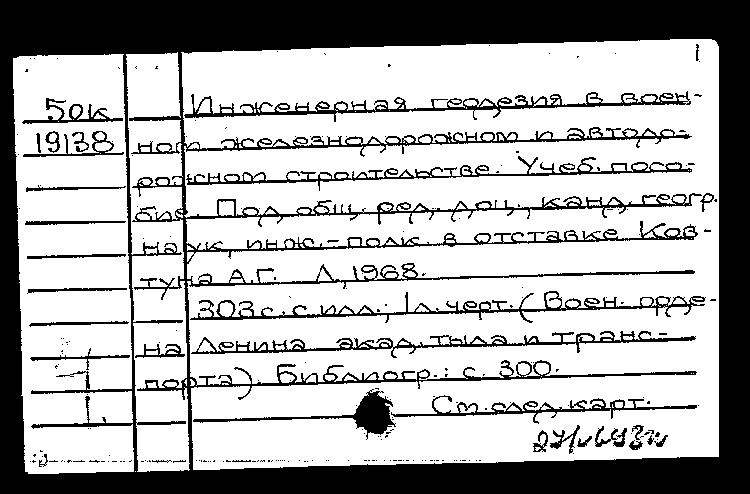 1
50к Инженерная геодезия в воен-
19138 ном железнодорожном и автодо-
рожном строительстве. Учеб. посо-
бие. Под общ. ред. доц., канд. геогр.
наук, инж.-полк. в отставке Ков-
туна А.Г. Л., 1968.
303 с. с илл.; 1 л. черт. (Воен. орде-
на Ленина акад. тыла и транс-
порта). Библиогр.: с. 300.
См. след. карт.